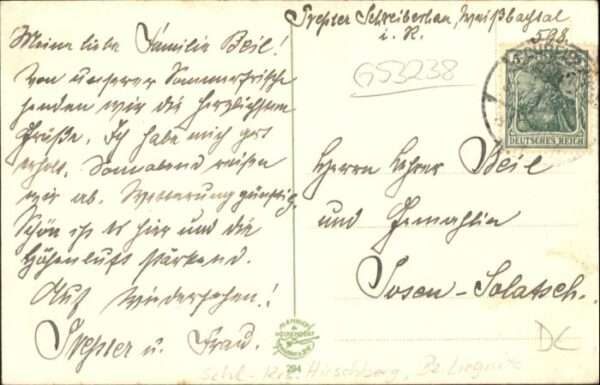 Treßter Schreiberhau, Weißbachtal
i. R. 598.
Meine liebe Familie Beil!
Von unserer Sommerfrische
senden wir die herzlichsten
Grüße. Ich habe mich gut
erholt, Sonnabend reisen
wir ab. Witterung günstig.
Schön ist es hier und die
Höhenluft stärkend.
Auf Wiedersehen!
u. Frau.
G53238
DEUTSCHES REICH
Herrn Lehrer Beil
und Gemahlin
Posen-Solatsch.
294
DC
Schl.- Krs. Hirschberg, Bz Liegnitz